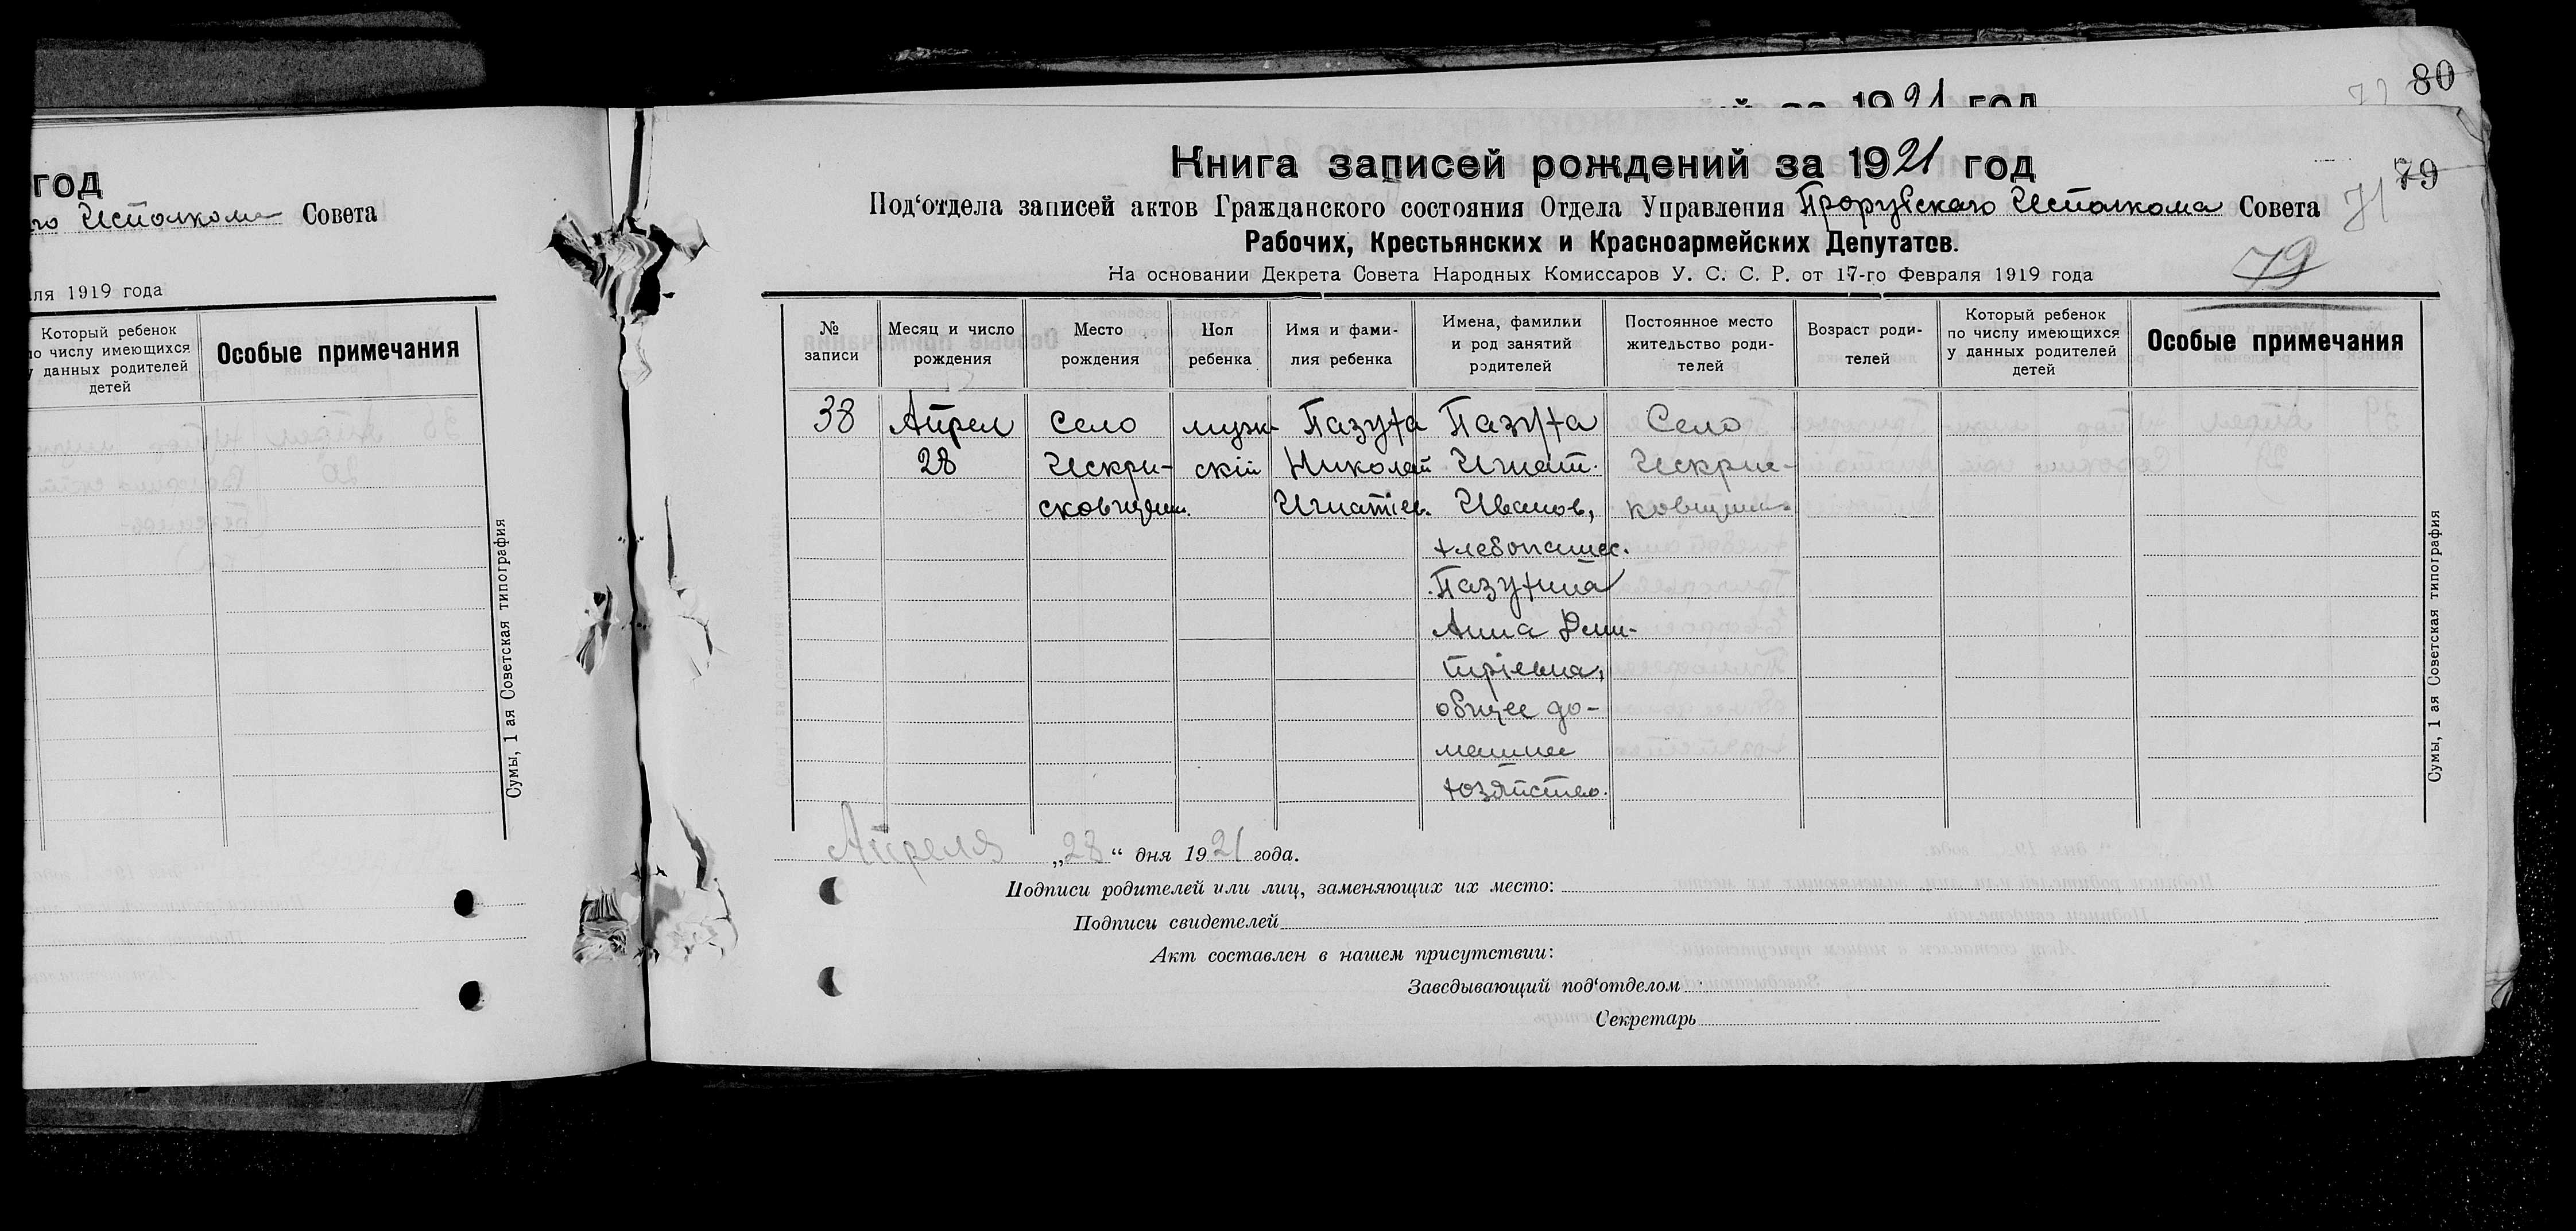 80
й за 1921 год
79
71
79
год
го Исполкома Совета
ля 1919 года
Который ребенок
по числу имеющихся
у данных родителей
детей
Особые примечания
Сумы, 1 ая Советская типография
Книга записей рождений за 1921 год
Под‘отдела записей актов Гражданского состояния Отдела Управления Прорубскаго Исполкома Совета
Рабочих, Крестьянских и Красноармейских Депутатов.
На основании Декрета Совета Народных Комиссаров У. С. С. Р. от 17-го Февраля 1919 года
№
записи
Месяц и число
рождения
Место
рождения
Пол
ребенка
Имя и фами-
лия ребенка
Имена, фамилии
и род занятий
родителей
Постоянное место
жительство роди-
телей
Возраст роди-
телей
Который ребенок
по числу имеющихся
у данных родителей
детей
Особые примечания
38
Апрел
28
Село
Искри-
сковщин.
муж-
скій
Пазуха
Николай
Игнатіев.
Пазуха
Игнат.
Иванов,
хлебопашес.
Пазухина
Анна Дми-
тріевна,
общее до-
машнее
хозяйство.
Село
Искрис-
ковщина.
Апреля „28“ дня 1921 года.
Подписи родителей или лиц, заменяющих их место:
Подписи свидетелей
Акт составлен в нашем присутствии:
Заведывающий под‘отделом
Секретарь
Сумы, 1 ая Советская типография